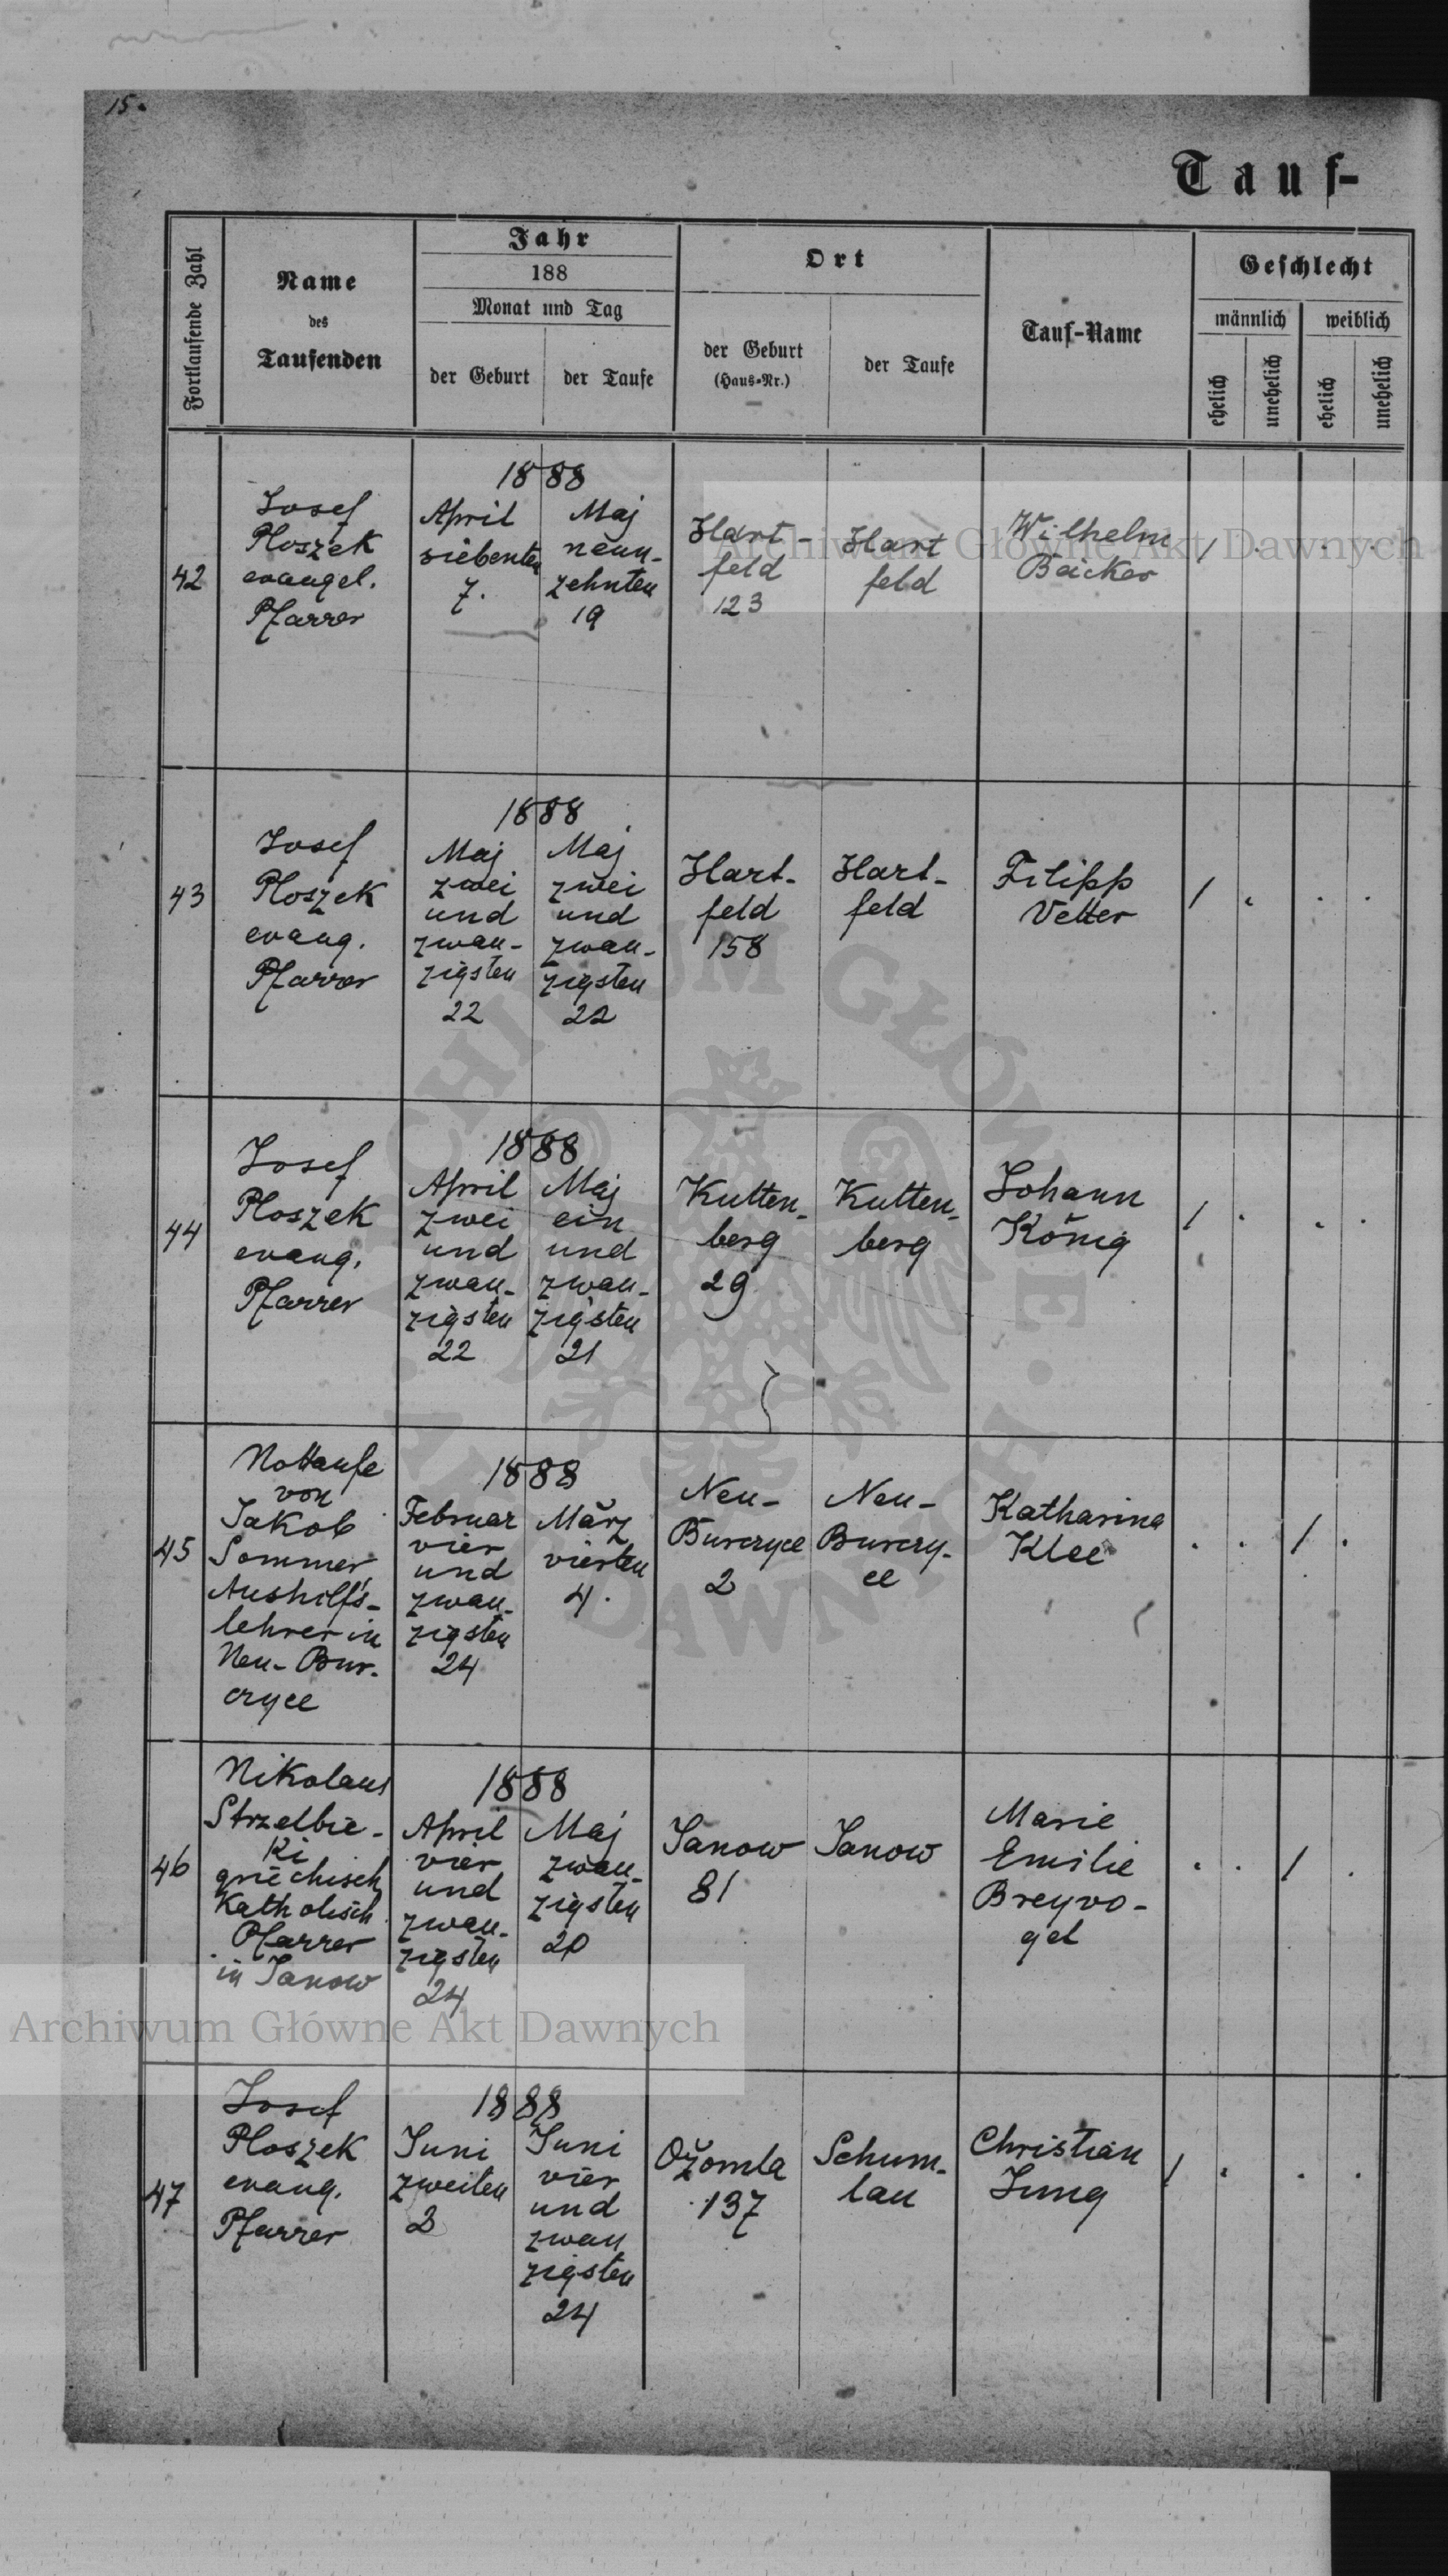 15.
Tauf-
Fortlaufende Zahl
Name
des
Taufenden
Jahr
188
Monat und Tag
der Geburt
der Taufe
Ort
der Geburt
(Haus-Nr.)
der Taufe
Tauf-Name
Geschlecht
männlich
weiblich
ehelich
unehelich
ehelich
unehelich
42
Josef
Ploszek
evangel.
Pfarrer
1888
April
siebenten
7.
Maj
neun-
zehnten
19
Hart-
feld
123
Hart
feld
Wilhelm
Bäcker
/ . . .
43
Josef
Ploszek
evang.
Pfarrer
1888
Maj
zwei
und
zwan-
zigsten
22
Maj
zwei
und
zwan-
zigsten
22
Hart-
feld
158
Hart-
feld
Filipp
Vetter
/ . . .
44
Josef
Ploszek
evang.
Pfarrer
1888
April
zwei
und
zwan-
zigsten
22
Maj
ein
und
zwan-
zigsten
21
Kutten-
berg
29
Kutten-
berg
Johann
König
/ . . .
45
Nottaufe
von
Jakob
Sommer,
Aushilfs-
lehrer in
Neu-Bur-
czyce
1888
Februar
vier
und
zwan-
zigsten
24
März
vierten
4.
Neu-
Burczyce
2
Neu-
Burczy-
ce
Katharina
Klee
. . / .
46
Nikolaus
Strzelbic-
ki
griechisch
Katholisch
Pfarrer
in Janow
1888
April
vier
und
zwan-
zigsten
24
Maj
zwan-
zigsten
20
Janow
81
Janow
Marie
Emilie
Breyvo-
gel
. . / .
47
Josef
Ploszek
evang.
Pfarrer
1888
Juni
zweiten
2
Juni
vier
und
zwan
zigsten
24
Ožomla
137
Schum-
lau
Christian
Jung
/ . . .
Archiwum Główne Akt Dawnych
ARCHIWUM GŁÓWNE AKT DAWNYCH
Archiwum Główne Akt Dawnych